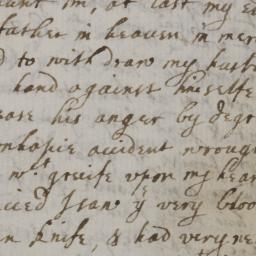 at last my
father in heaven in mer
to with draw my husb
hand against himselfe
ease his anger by degr
unhapie accident wroug
wt greife upon my hear
I saw ye very bloo
knife, & had very ne